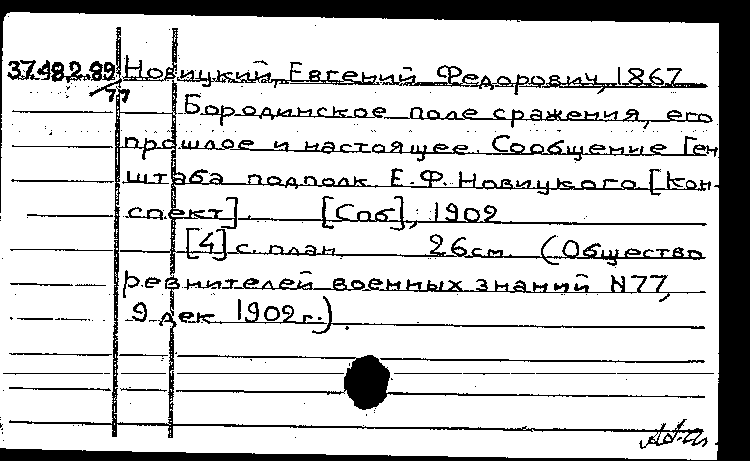 37.48.2.89 Новицкий, Евгений Федорович, 1867
77
Бородинское поле сражения, его
прошлое и настоящее. Сообщение Ген
штаба подполк. Е.Ф. Новицкого [Кон-
спект]. [Спб], 1902
[4] с. план. 26см. (Общество
ревнителей военных знаний N77,
9 дек. 1902 г.).